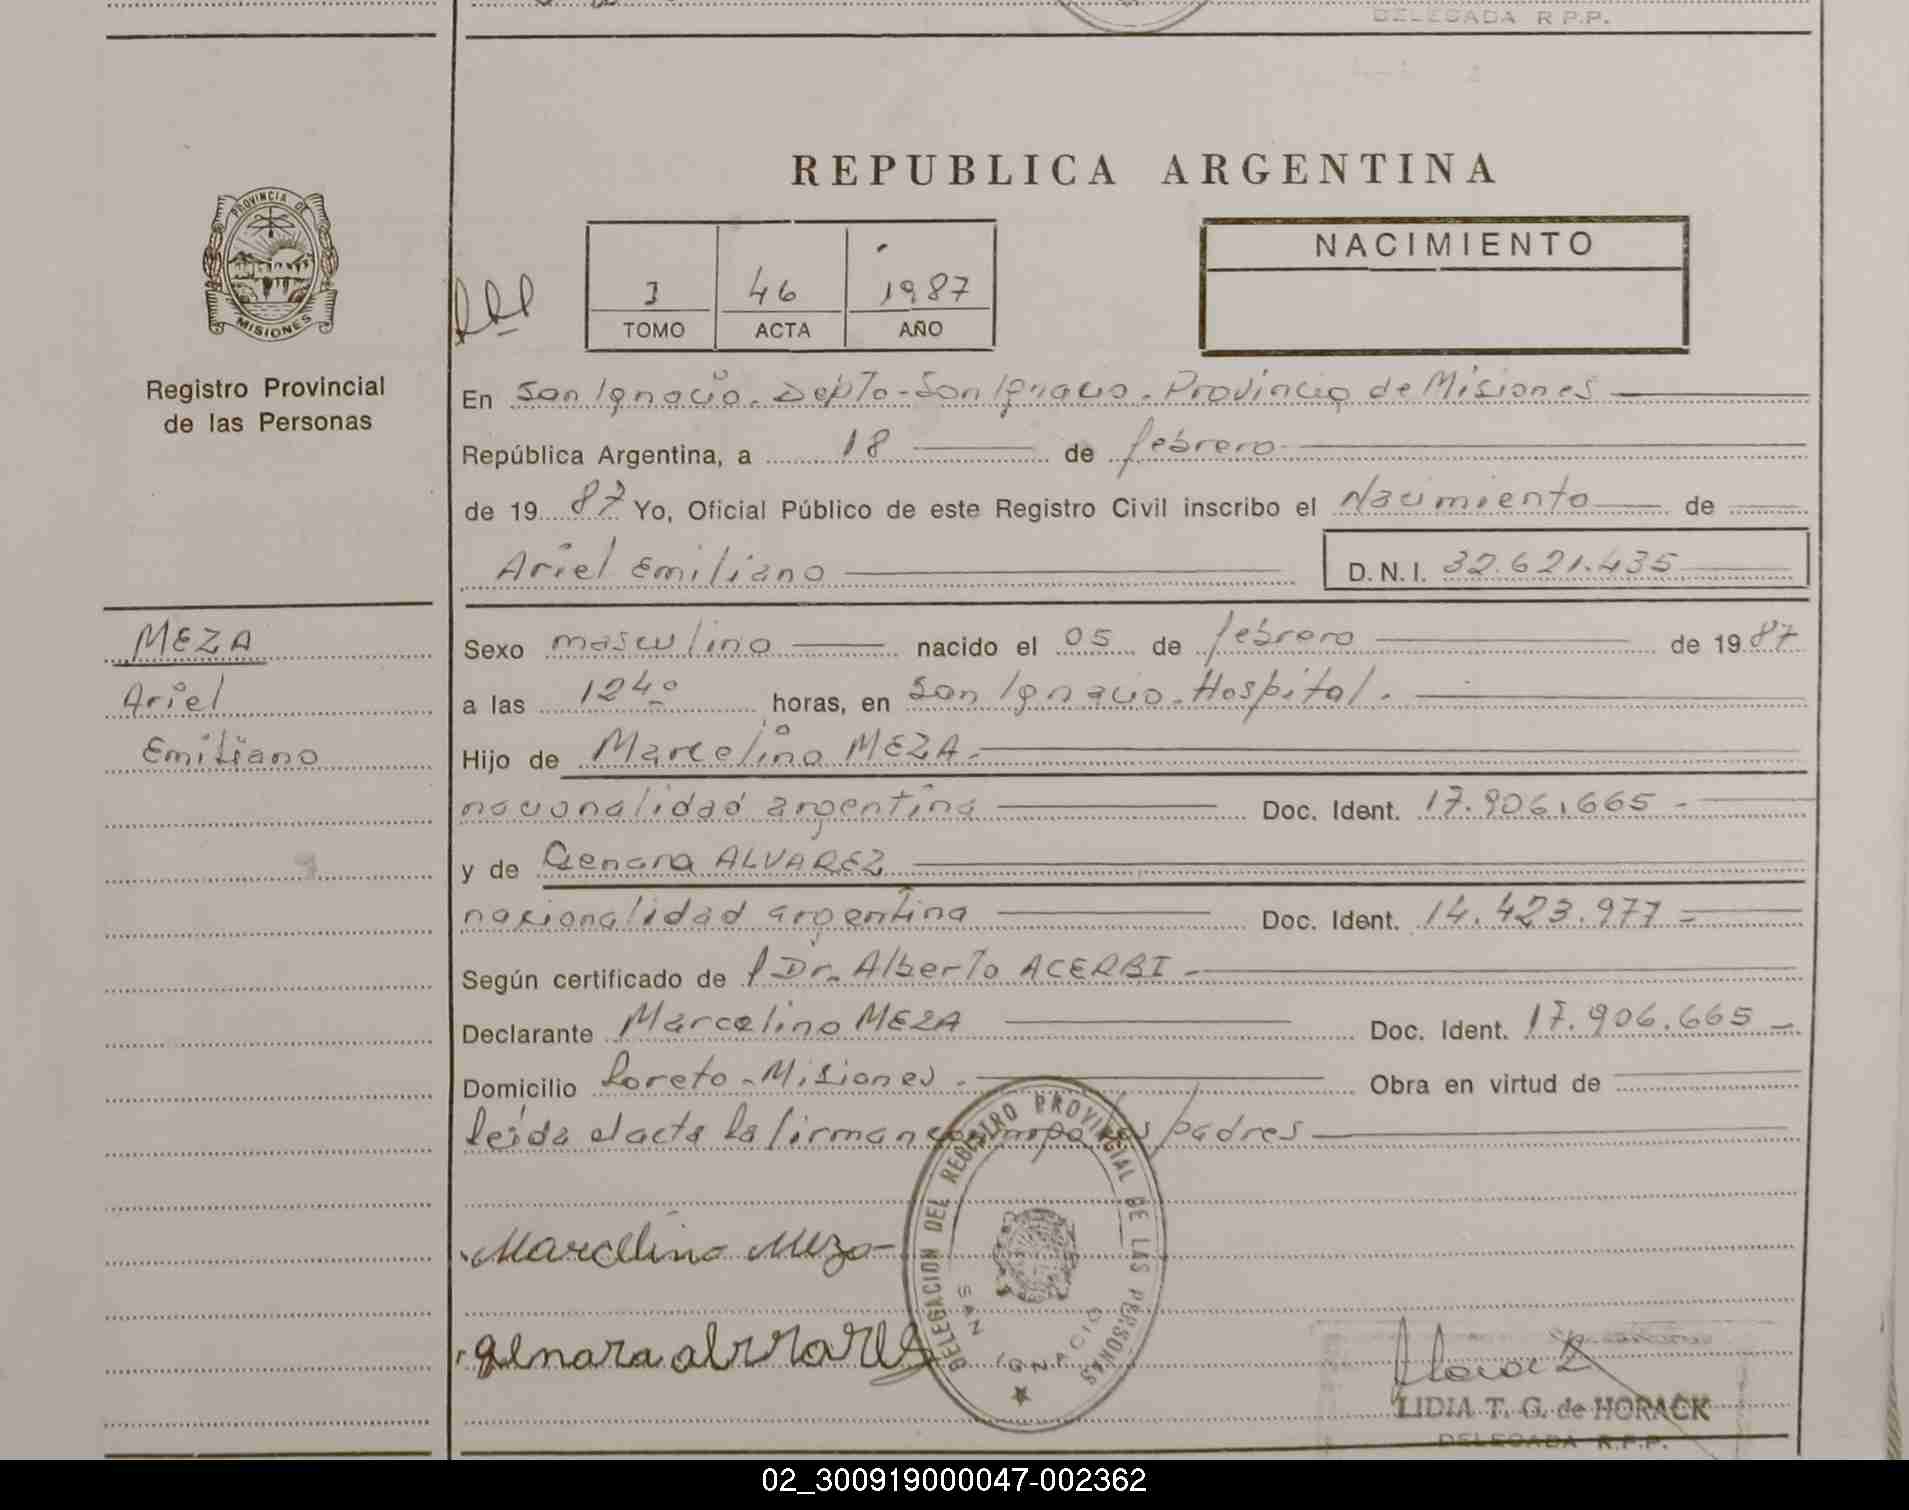 DELEGADA R.P.P.
REPUBLICA ARGENTINA
PROVINCIA DE
MISIONES
Registro Provincial
de las Personas
NACIMIENTO
I 46 1987
TOMO ACTA AÑO
En San Ignacio. Depto-San Ignacio. Provincia de Misiones
República Argentina, a 18 de febrero
de 19 87 Yo, Oficial Público de este Registro Civil inscribo el Nacimiento de
Ariel Emiliano D.N.I. 32.621.435
MEZA
Ariel
Emiliano
Sexo masculino nacido el 05 de febrero de 19 87
a las 12 40 horas, en San Ignacio-Hospital.
Hijo de Marcelino MEZA.
nacionalidad argentina Doc. Ident. 17.906.665 -
y de Genara ALVAREZ
nacionalidad argentina Doc. Ident. 14.423.977 -
Según certificado de Dr. Alberto ACERBI -
Declarante Marcelino MEZA Doc. Ident. 17.906.665 -
Domicilio Loreto - Misiones. Obra en virtud de
leída el acta la firman los padres
DELEGACION DEL REGISTRO PROVINCIAL DE LAS PERSONAS
SAN IGNACIO
Marcelino Meza
genara
LIDIA T. G. de HORACK
DELEGADA R.P.P.
02_300919000047-002362